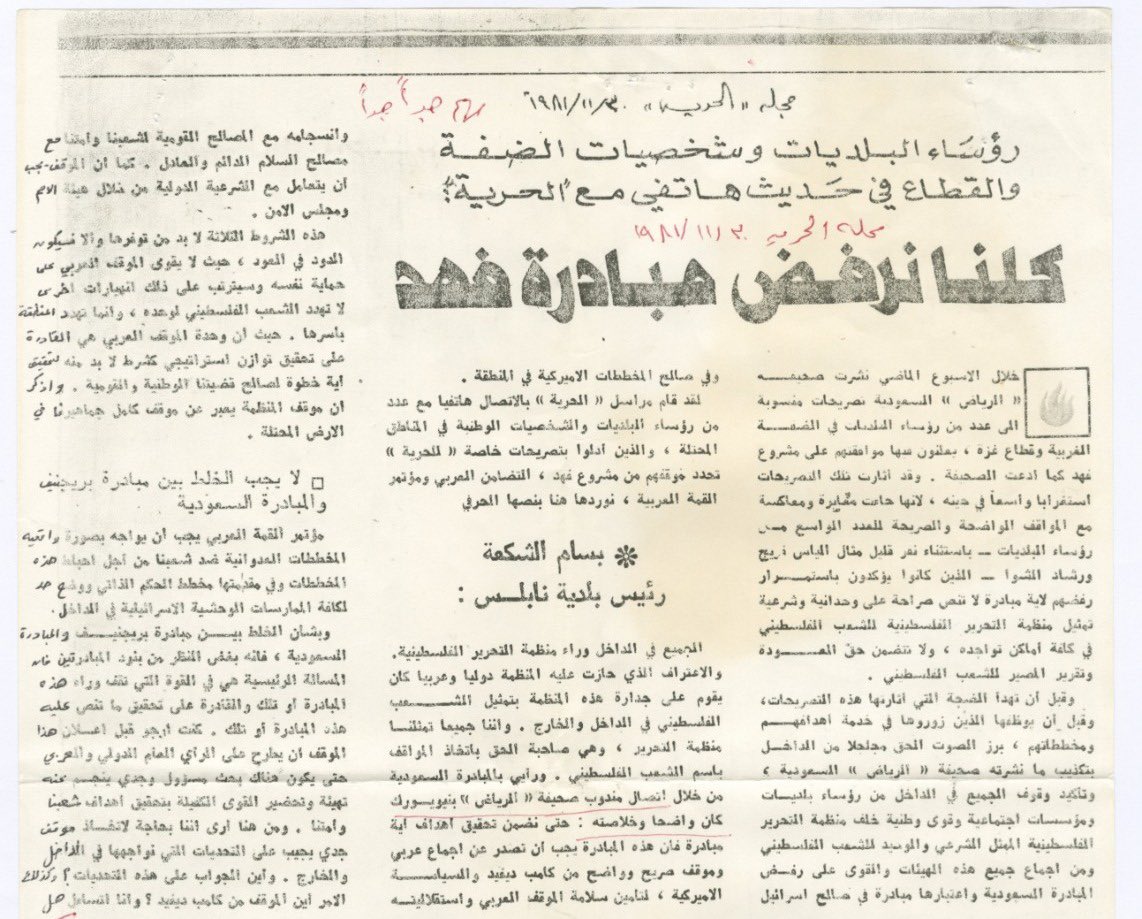 مجلة «الحرية» ١٩٨١/١١/٣٠
مهم جداً جداً
رؤساء البلديات وشخصيات الضفة
والقطاع في حديث هاتفي مع "الحرية":
مجلة الحرية ١٩٨١/١١/٣٠
كلنا نرفض مبادرة فهد
خلال الاسبوع الماضي نشرت صحيفة
« الرياض » السعودية تصريحات منسوبة
الى عدد من رؤساء البلديات في الضفة
الغربية وقطاع غزة ، يعلنون فيها موافقتهم على مشروع
فهد كما ادعت الصحيفة . وقد أثارت تلك التصريحات
استغرابا واسعا في حينه ، لانها جاءت مغايرة ومعاكسة
مع المواقف الواضحة والصريحة للعدد الواسع من
رؤساء البلديات ــ باستثناء نفر قليل مثال الياس فريج
ورشاد الشوا ــ الذين كانوا يؤكدون باستمرار
رفضهم لاية مبادرة لا تنص صراحة على وحدانية وشرعية
تمثيل منظمة التحرير الفلسطينية للشعب الفلسطيني
في كافة أماكن تواجده ، ولا تتضمن حق العودة
وتقرير المصير للشعب الفلسطيني .
وقبل أن تهدأ الضجة التي أثارتها هذه التصريحات،
وقبل أن يوظفها الذين زوروها في خدمة اهدافهم
ومخططاتهم ، برز الصوت الحق مجلجلا من الداخل
بتكذيب ما نشرته صحيفة « الرياض » السعودية ،
وتأكيد وقوف الجميع في الداخل من رؤساء بلديات
ومؤسسات اجتماعية وقوى وطنية خلف منظمة التحرير
الفلسطينية الممثل الشرعي والوحيد للشعب الفلسطيني
ومن اجماع جميع هذه الهيئات والقوى على رفض
المبادرة السعودية واعتبارها مبادرة في صالح اسرائيل
وفي صالح المخططات الاميركية في المنطقة .
لقد قام مراسل « الحرية » بالاتصال هاتفيا مع عدد
من رؤساء البلديات والشخصيات الوطنية في المناطق
المحتلة ، والذين أدلوا بتصريحات خاصة « للحرية »
تحدد موقفهم من مشروع فهد ، التضامن العربي ومؤتمر
القمة العربية ، نوردها هنا بنصها الحرفي
❋ بسام الشكعة
رئيس بلدية نابلس :
الجميع في الداخل وراء منظمة التحرير الفلسطينية.
والاعتراف الذي حازت عليه المنظمة دوليا وعربيا كان
يقوم على جدارة هذه المنظمة بتمثيل الشعب
الفلسطيني في الداخل والخارج . واننا جميعا تمثلنا
منظمة التحرير ، وهي صاحبة الحق بأتخاذ المواقف
باسم الشعب الفلسطيني . ورأيي بالمبادرة السعودية
من خلال اتصال مندوب صحيفة « الرياض » بنيويورك
كان واضحا وخلاصته : حتى نضمن تحقيق أهداف أية
مبادرة فان هذه المبادرة يجب أن تصدر عن اجماع عربي
وموقف صريح وواضح من كامب ديفيد والسياسة
الاميركية ، لتأمين سلامة الموقف العربي واستقلاليته
وانسجامه مع المصالح القومية لشعبنا وامتنا مع
مصالح السلام الدائم والعادل . كما أن الموقف يجب
أن يتعامل مع الشرعية الدولية من خلال هيئة الامم
ومجلس الامن .
هذه الشروط الثلاثة لا بد من توفرها وألا فسيكون
المدود في العود ، حيث لا يقوى الموقف العربي على
حماية نفسه وسيترتب على ذلك انهيارات أخرى
لا تهدد الشعب الفلسطيني لوحده ، وانما تهدد المنطقة
بأسرها . حيث أن وحدة الموقف العربي هي القادرة
على تحقيق توازن استراتيجي كشرط لا بد منه لتحقيق
أية خطوة لصالح قضيتنا الوطنية والقومية . واذكر
ان موقف المنظمة يعبر عن موقف كامل جماهيرنا في
الارض المحتلة .
□ لا يجب الخلط بين مبادرة بريجنيف
والمبادرة السعودية
مؤتمر القمة العربي يجب أن يواجه بصورة واقعية
المخططات العدوانية ضد شعبنا من أجل احباط هذه
المخططات وفي مقدمتها مخطط الحكم الذاتي ووضع حد
لكافة الممارسات الوحشية الاسرائيلية في الداخل.
وبشأن الخلط بين مبادرة بريجنيف والمبادرة
السعودية ، فانه بغض النظر عن بنود المبادرتين فان
المسألة الرئيسية هي في القوة التي تقف وراء هذه
المبادرة أو تلك والقادرة على تحقيق ما تنص عليه
هذه المبادرة أو تلك . كنت أرجو قبل اعلان هذا
الموقف ان يطرح على الرأي العام الدولي والعربي
حتى يكون هناك بحث مسؤول وجدي ينجسم عنه
تهيئة وتحضير القوى الكفيلة بتحقيق أهداف شعبنا
وامتنا . ومن هنا أرى اننا بحاجة لاتخاذ موقف
جدي يجيب على التحديات التي نواجهها في الداخل
والخارج . وأين الجواب على هذه التحديات؟ وكذلك
الامر أين الموقف من كامب ديفيد ؟ وأنا أتساءل هل